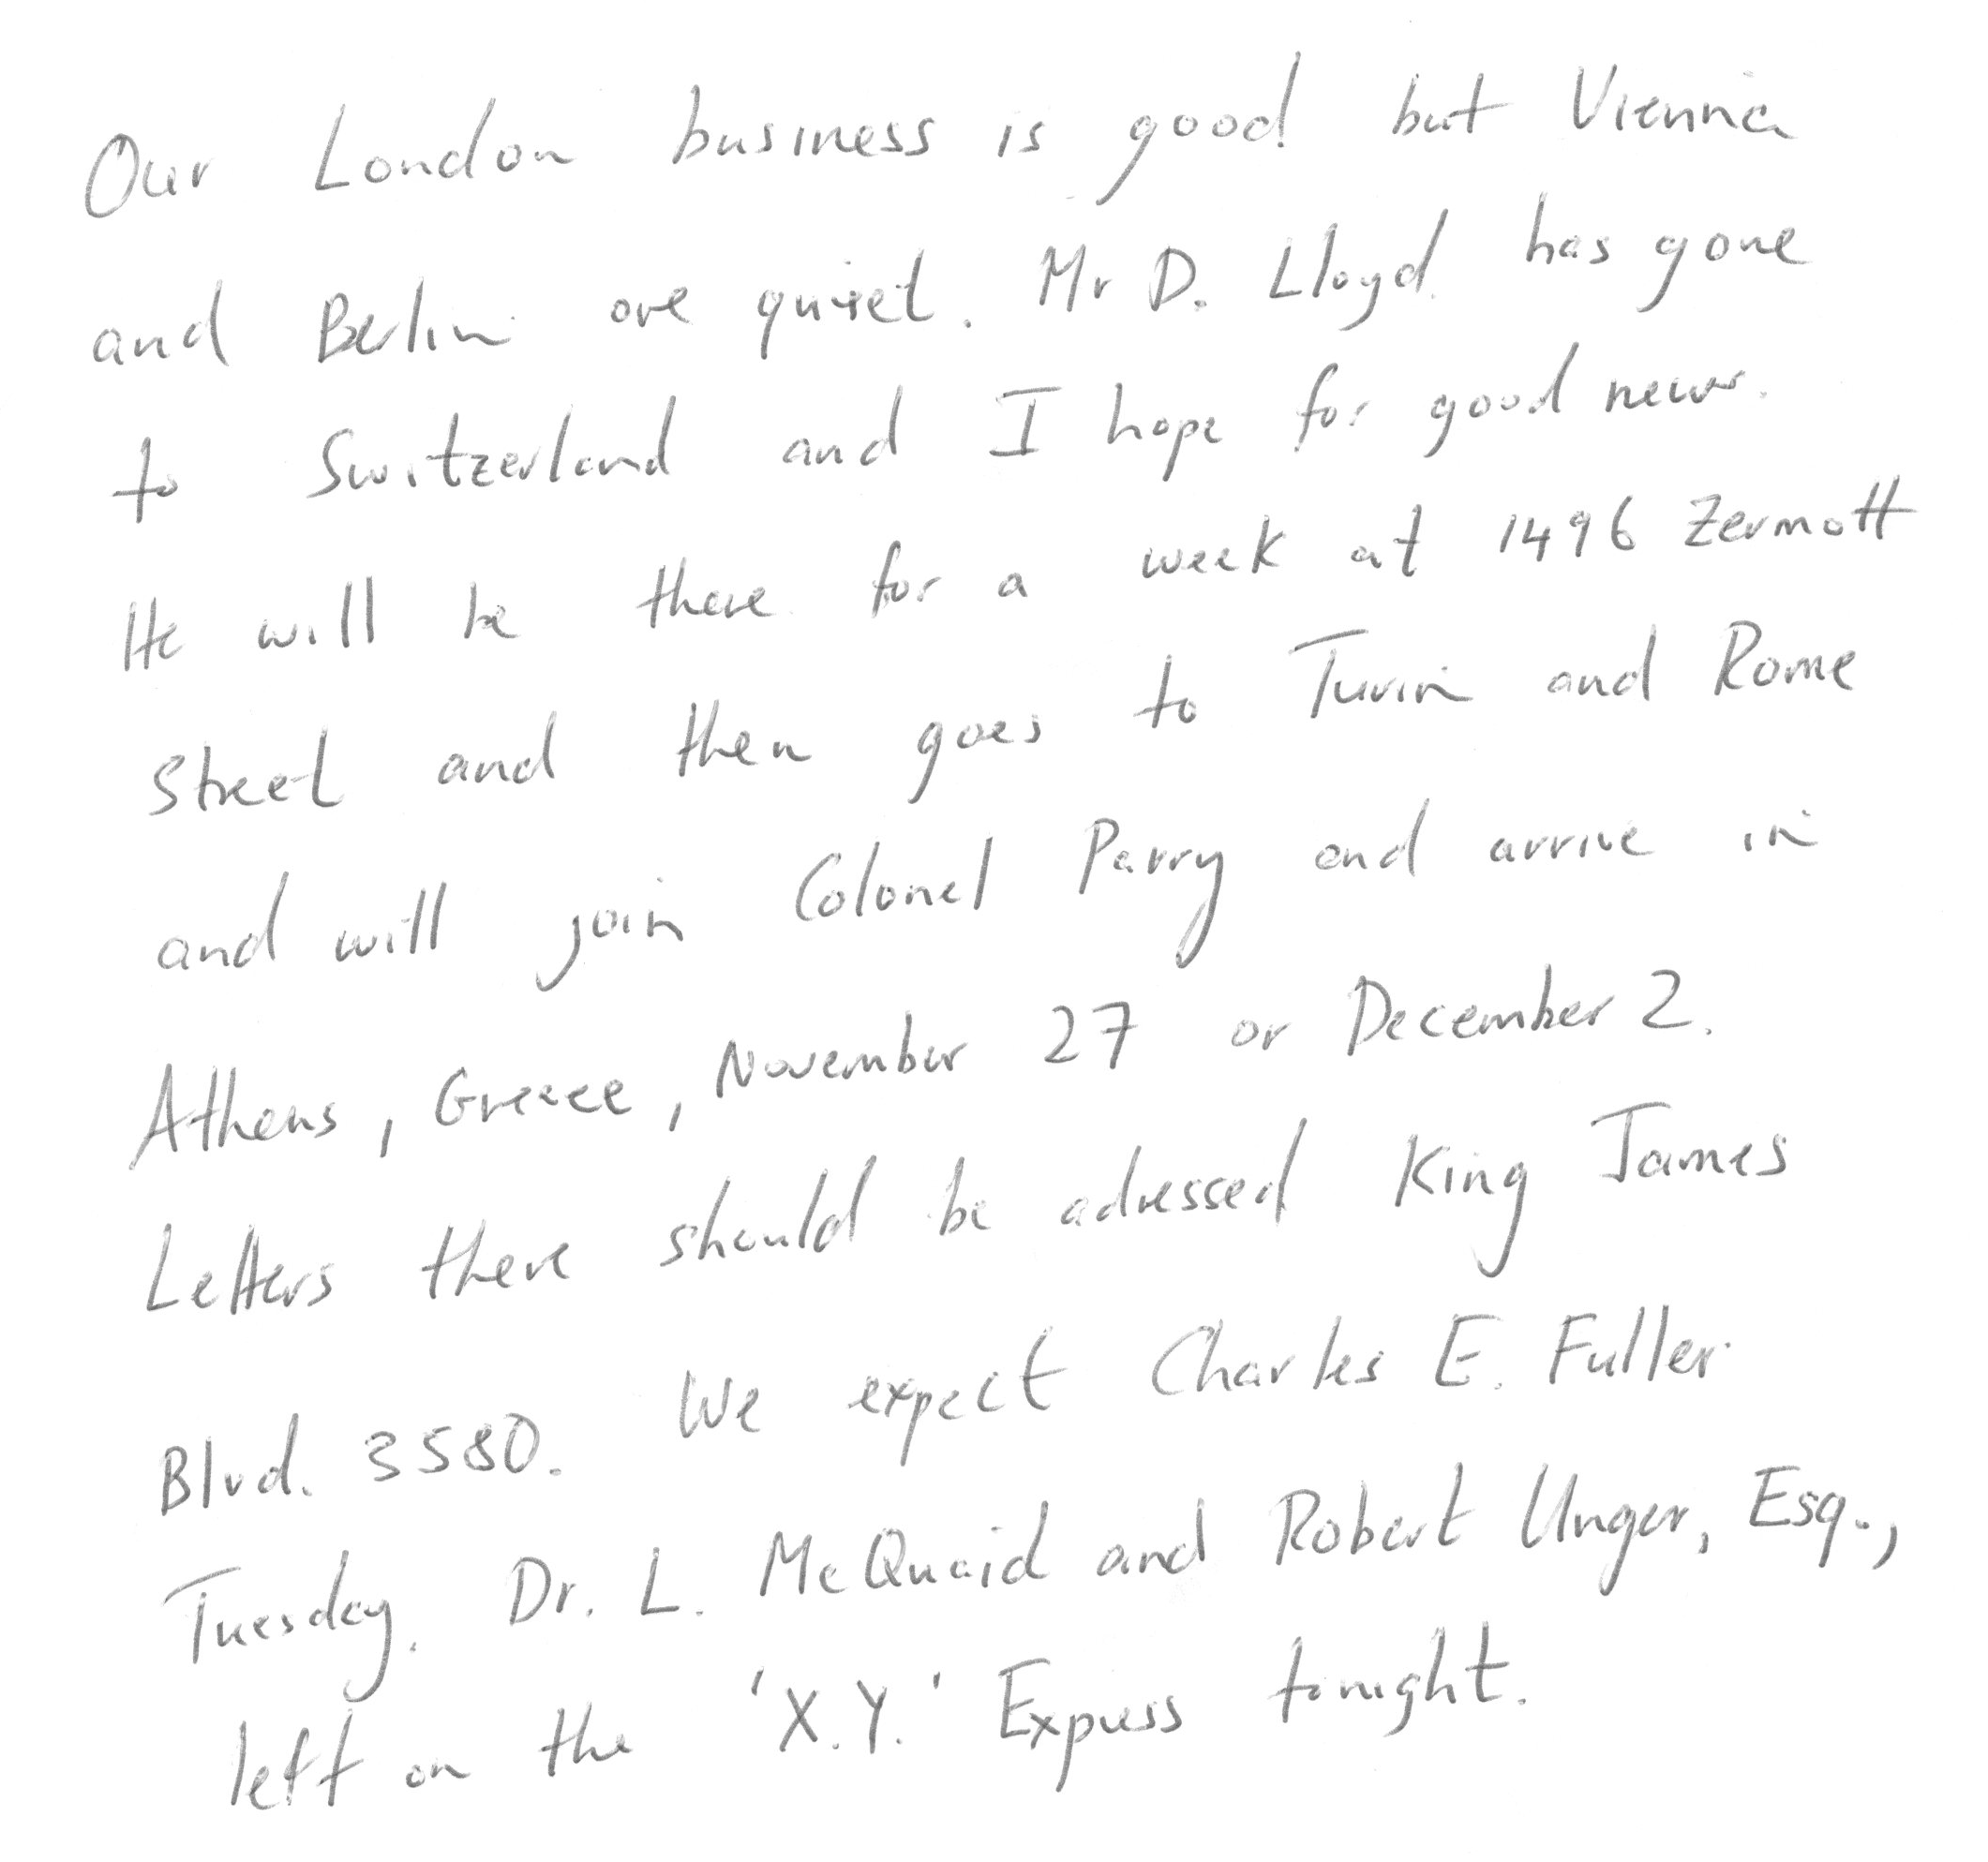 Our London business is good but Vienna
and Berlin are quiet. Mr D. Lloyd has gone
to Switzerland and I hope for good news.
He will be there for a week at 1496 Zermott
Street and then goes to Turin and Rome
and will join Colonel Parry and arrive in
Athens, Greece, November 27 or December 2.
Letters there should be adressed King James
Blvd. 3580. We expect Charles E. Fuller
Tuesday. Dr. L. McQuaid and Robert Unger, Esq.,
left on the 'X.Y.' Express tonight.